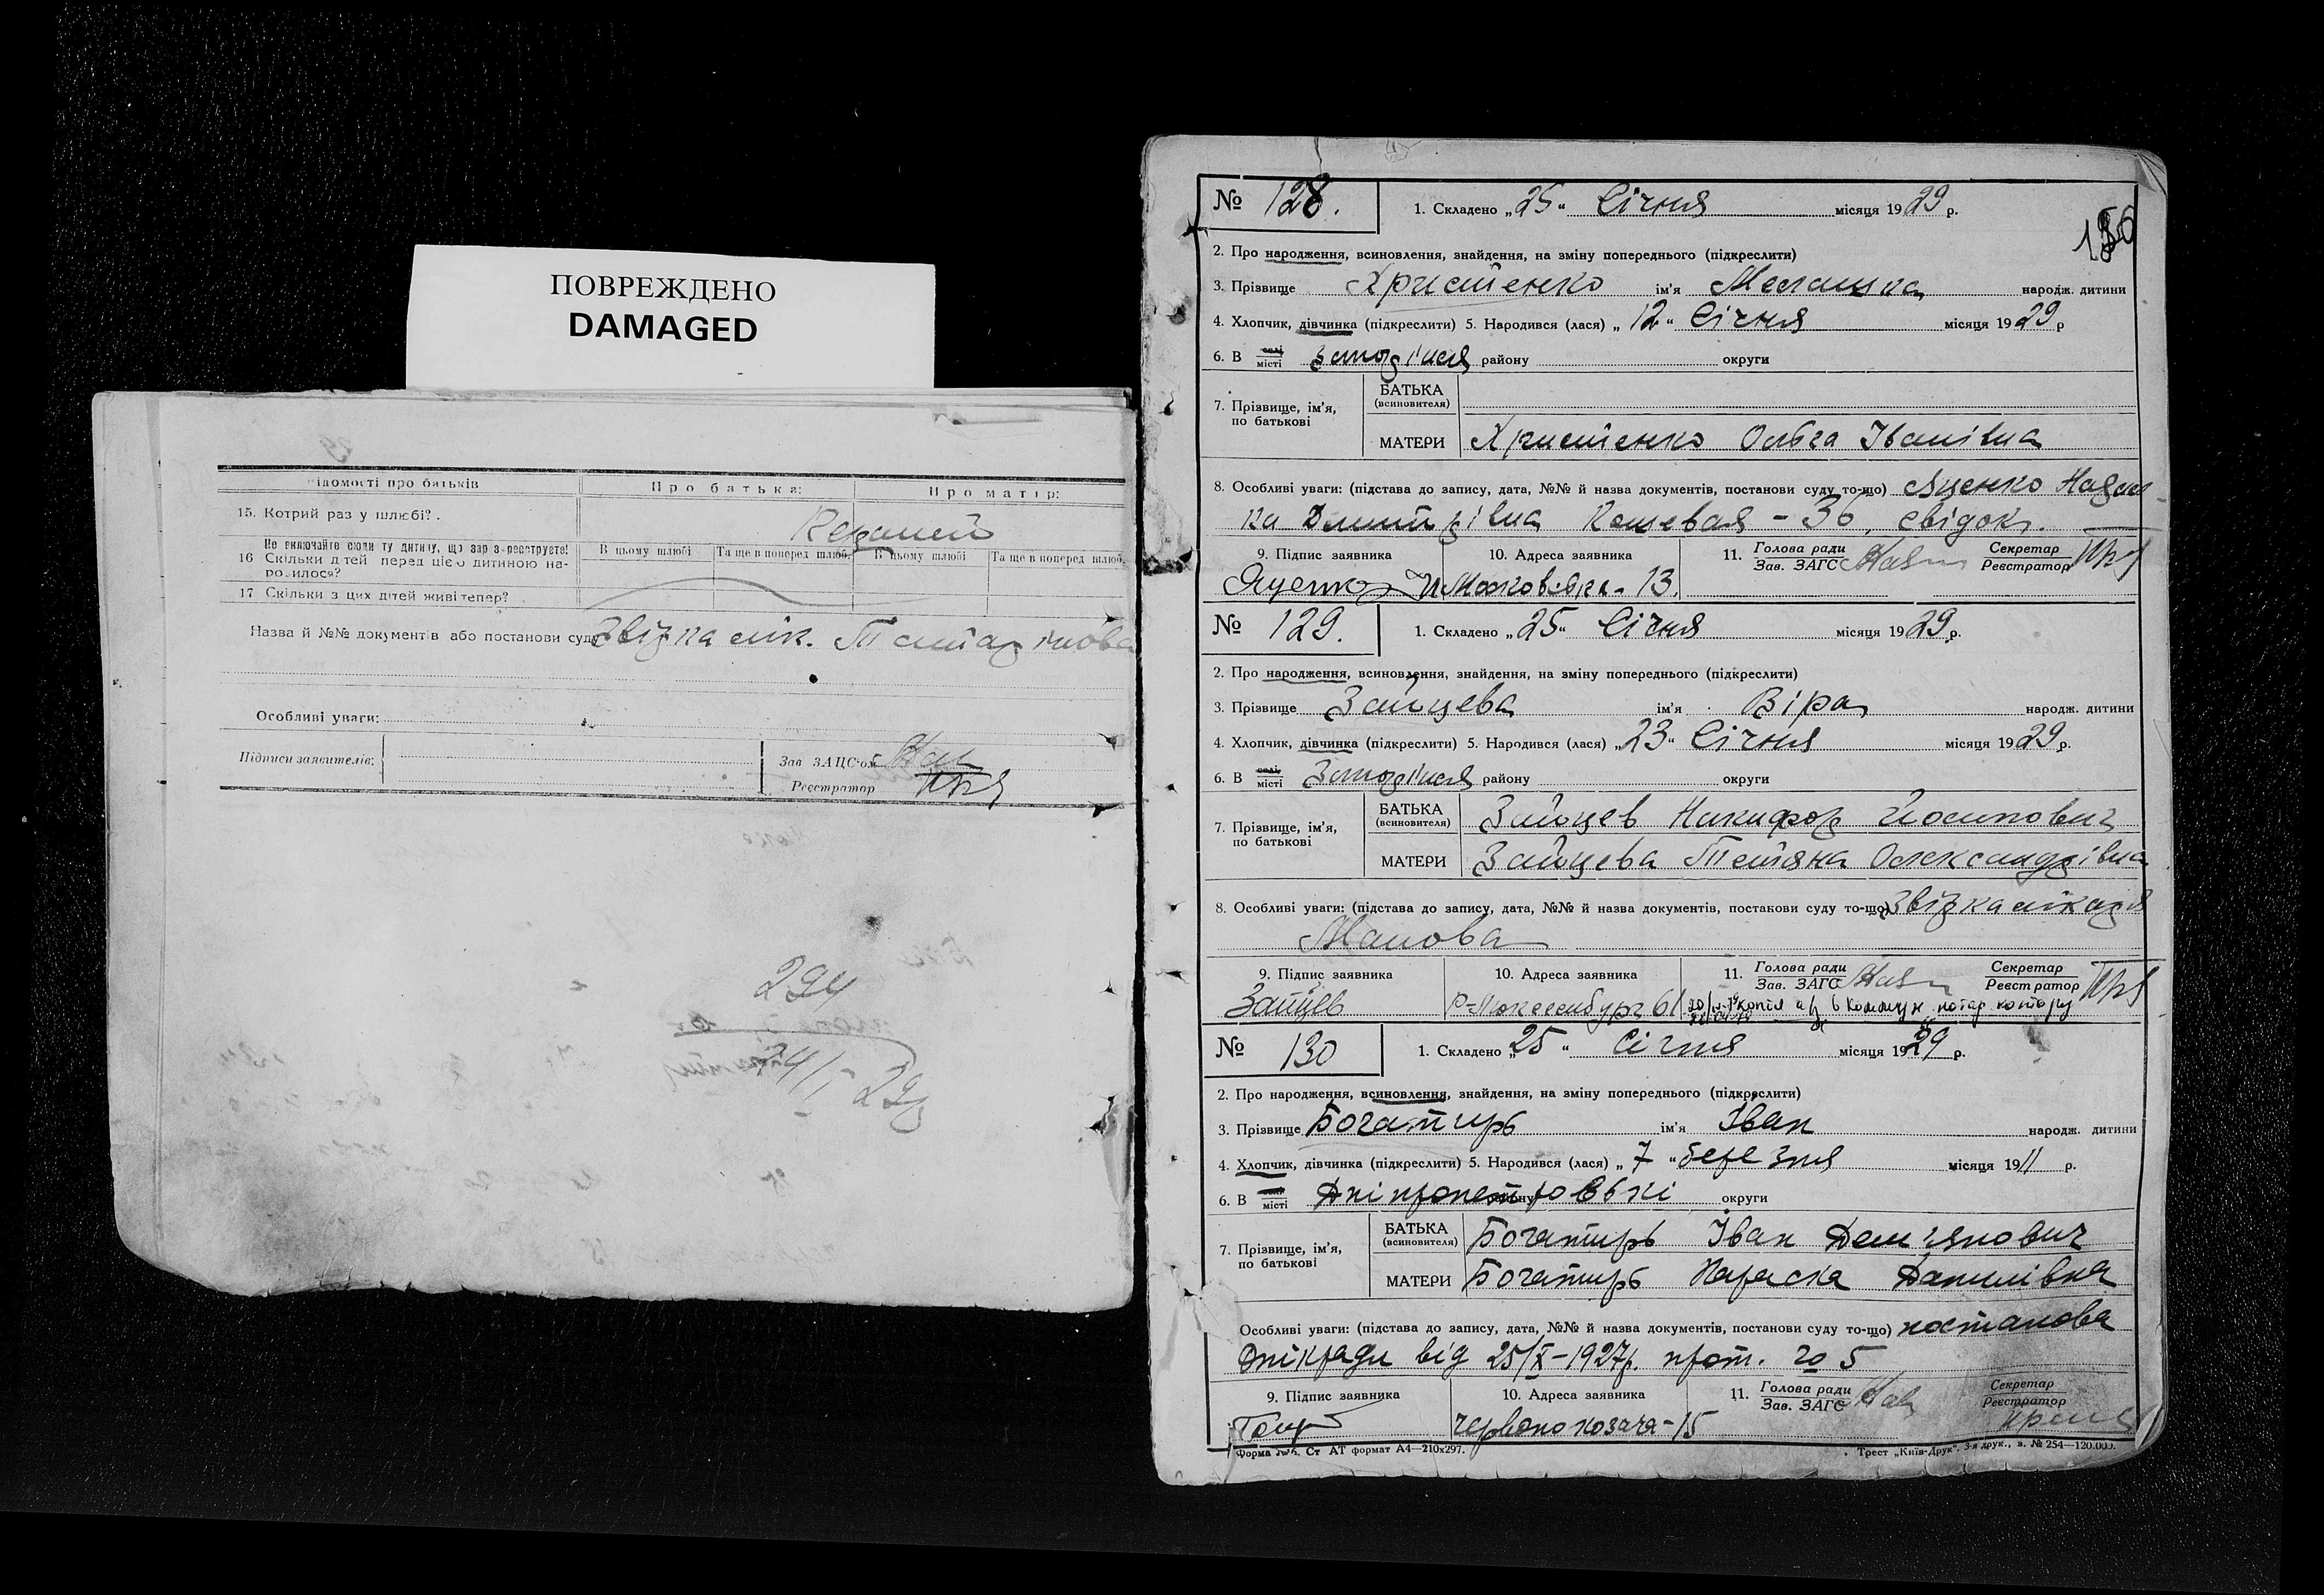 ПОВРЕЖДЕНО
DAMAGED
відомості про батьків
Про батька:
Про матір:
15. Котрий раз у шлюбі?
Не включайте сюди ту дитину, що зараз реєструєте!
16 Скільки дітей перед цією дитиною народилося?
В цьому шлюбі
Та ще в поперед шлюб.
В цьому шлюбі
Та ще в поперед шлюб.
17 Скільки з цих дітей живі тепер?
Назва й №№ документів або постанови суду звідка лік.
Особливі уваги:
Підписи заявителів:
Зав ЗАЦС'ом
Реєстратор
294
24/I 29р
156
№ 128.
1. Складено „25“ Січня місяця 1929 р.
2. Про народження, всиновлення, знайдення, на зміну попереднього (підкреслити)
3. Прізвище Христенко ім'я Мелашка народж. дитини
4. Хлопчик, дівчинка (підкреслити) 5. Народився (лася) „12“ Січня місяця 1929 р
6. В селі місті Запоріжжя району округи
7. Прізвище, ім'я, по батькові
БАТЬКА (всиновителя)
МАТЕРИ Христенко Ольга Іванівна
8. Особливі уваги: (підстава до запису, дата, №№ й назва документів, постанови суду то-що) Яценко
Дмитрівна – 36, свідок.
9. Підпис заявника
10. Адреса заявника
11. Голова ради Зав. ЗАГС
Секретар Реєстратор
Яценко Московська - 13.
№ 129.
1. Складено „25“ Січня місяця 1929 р.
2. Про народження, всиновлення, знайдення, на зміну попереднього (підкреслити)
3. Прізвище Зайцева ім'я Віра народж. дитини
4. Хлопчик, дівчинка (підкреслити) 5. Народився (лася) „23“ Січня місяця 1929 р.
6. В селі місті Запоріжжя району округи
7. Прізвище, ім'я, по батькові
БАТЬКА (всиновителя) Зайцев Никифор Йосипович
МАТЕРИ Зайцева Тетяна Олександрівна
8. Особливі уваги: (підстава до запису, дата, №№ й назва документів, постанови суду то-що) звідка лікаря
9. Підпис заявника
10. Адреса заявника
11. Голова ради Зав. ЗАГС
Секретар Реєстратор
Зайцев Р-Люксембург 61 копія
№ 130
1. Складено „25“ Січня місяця 1929 р.
2. Про народження, всиновлення, знайдення, на зміну попереднього (підкреслити)
3. Прізвище Богатирь ім'я Іван народж. дитини
4. Хлопчик, дівчинка (підкреслити) 5. Народився (лася) „7“ березня місяця 1911 р.
6. В селі місті Дніпропетровські району округи
7. Прізвище, ім'я, по батькові
БАТЬКА (всиновителя) Богатирь Іван Дем'янович
МАТЕРИ Богатирь Параска Данилівна
Особливі уваги: (підстава до запису, дата, №№ й назва документів, постанови суду то-що) постанова
від 25/X–1927р. прот. № 5
9. Підпис заявника
10. Адреса заявника
11. Голова ради Зав. ЗАГС
Секретар Реєстратор
червонокозача-15
Форма № 6. Ст АТ формат А4—210х297.
Трест „Київ-Друк“. 3-я друк., з. № 254—120.000.